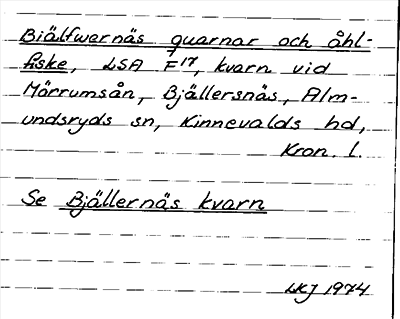 Biälfwernäs quarnar och åhl-
fiske, LSA F17, kvarn vid
Mörrumsån, Bjällersnäs, Alm-
undsryds sn, Kinnevalds hd,
Kron. l.
Se Bjällernäs kvarn
LKJ 1974